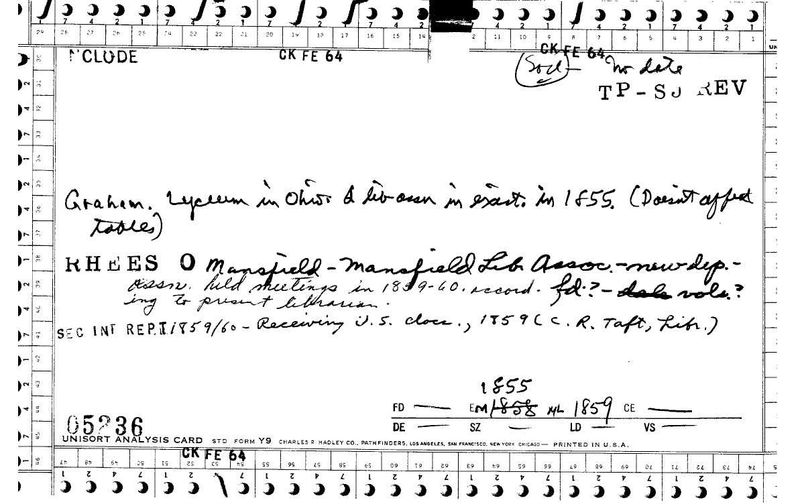 CK FE 64
NCLUDE CK FE 64
(Socl) - No date
TP - SJ REV
Graham. Lyceum in Ohio & lib assn in exist. in 1855. (Doesn't affect
tables)
RHEES O Mansfield - Mansfield Lib. Assoc. - new dep. -
Assn. held meetings in 1859-60. accord- fd.? - vols.?
ing to present librarian.
SEC INT REPT 1859/60 - Receiving U.S. docs., 1859 (C. R. Taft, Libr.)
1855
FD — EM 1858 ML 1859 CE —
DE — SZ — LD — VS —
05236
UNISORT ANALYSIS CARD STD FORM Y9 CHARLES R HADLEY CO., PATHFINDERS, LOS ANGELES, SAN FRANCISCO, NEW YORK CHICAGO — PRINTED IN U.S.A.
CK FE 64